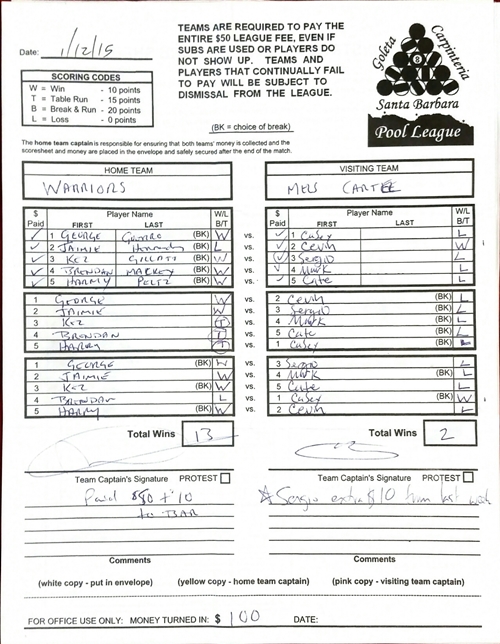 TEAMS ARE REQUIRED TO PAY THE
ENTIRE $50 LEAGUE FEE, EVEN IF
SUBS ARE USED OR PLAYERS DO
NOT SHOW UP. TEAMS AND
PLAYERS THAT CONTINUALLY FAIL
TO PAY WILL BE SUBJECT TO
DISMISSAL FROM THE LEAGUE.
Date: 1/12/15
SCORING CODES
W = Win - 10 points
T = Table Run - 15 points
B = Break & Run - 20 points
L = Loss - 0 points
(BK = choice of break)
Goleta
Carpinteria
8
Santa Barbara
Pool League
The home team captain is responsible for ensuring that both teams' money is collected and the
scoresheet and money are placed in the envelope and safely secured after the end of the match.
HOME TEAM
WARRIORS
VISITING TEAM
MELS CARTEL
$ Paid Player Name FIRST LAST W/L B/T
$ Paid Player Name FIRST LAST W/L B/T
1 GEORGE (BK) W vs. 1 Casey L
2 JAIMIE (BK) L vs. 2 Cevin W
3 KEZ GILLATT (BK) W vs. 3 Sergio L
4 BRENDAN MACKEY (BK) W vs. 4 Mark L
5 HARRY PELTZ (BK) W vs. 5 Cate L
1 GEORGE W vs. 2 Cevin (BK) L
2 JAIMIE W vs. 3 Sergio (BK) L
3 KEZ T vs. 4 Mark (BK) L
4 BRENDAN T vs. 5 Cate (BK) L
5 HARRY T vs. 1 Casey (BK) L
1 GEORGE (BK) W vs. 3 Sergio L
2 JAIMIE (BK) W vs. 4 Mark L
3 KEZ (BK) W vs. 5 Cate L
4 BRENDAN (BK) L vs. 1 Casey W
5 HARRY (BK) W vs. 2 Cevin L
Total Wins 13
Total Wins 2
Team Captain's Signature PROTEST
Team Captain's Signature PROTEST
Paid $50 + 10
to BAR
Sergio extra $10 from last week
Comments
Comments
(white copy - put in envelope) (yellow copy - home team captain) (pink copy - visiting team captain)
FOR OFFICE USE ONLY: MONEY TURNED IN: $ 100 DATE: